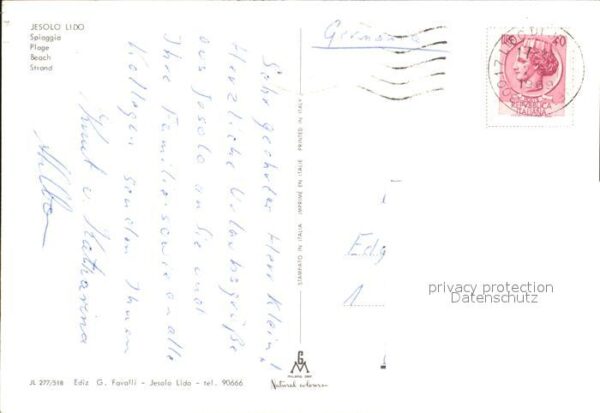 JESOLO LIDO
Spiaggia
Plage
Beach
Strand
Sehr geehrter Herr Klein!
Herzliche Urlaubsgrüße
aus Jesolo an Sie und
Ihre Familie sowie alle
Kollegen senden Ihnen
Knut u. Katharina
STAMPATO IN ITALIA - IMPRIMÉ EN ITALIE - PRINTED IN ITALY
Germany
40
REPUBBLICA
ITALIANA
1969
Edg
1
privacy protection
Datenschutz
G M
Natural colour
JL 277/518 Ediz G. Favalli - Jesolo Lido - tel. 90666